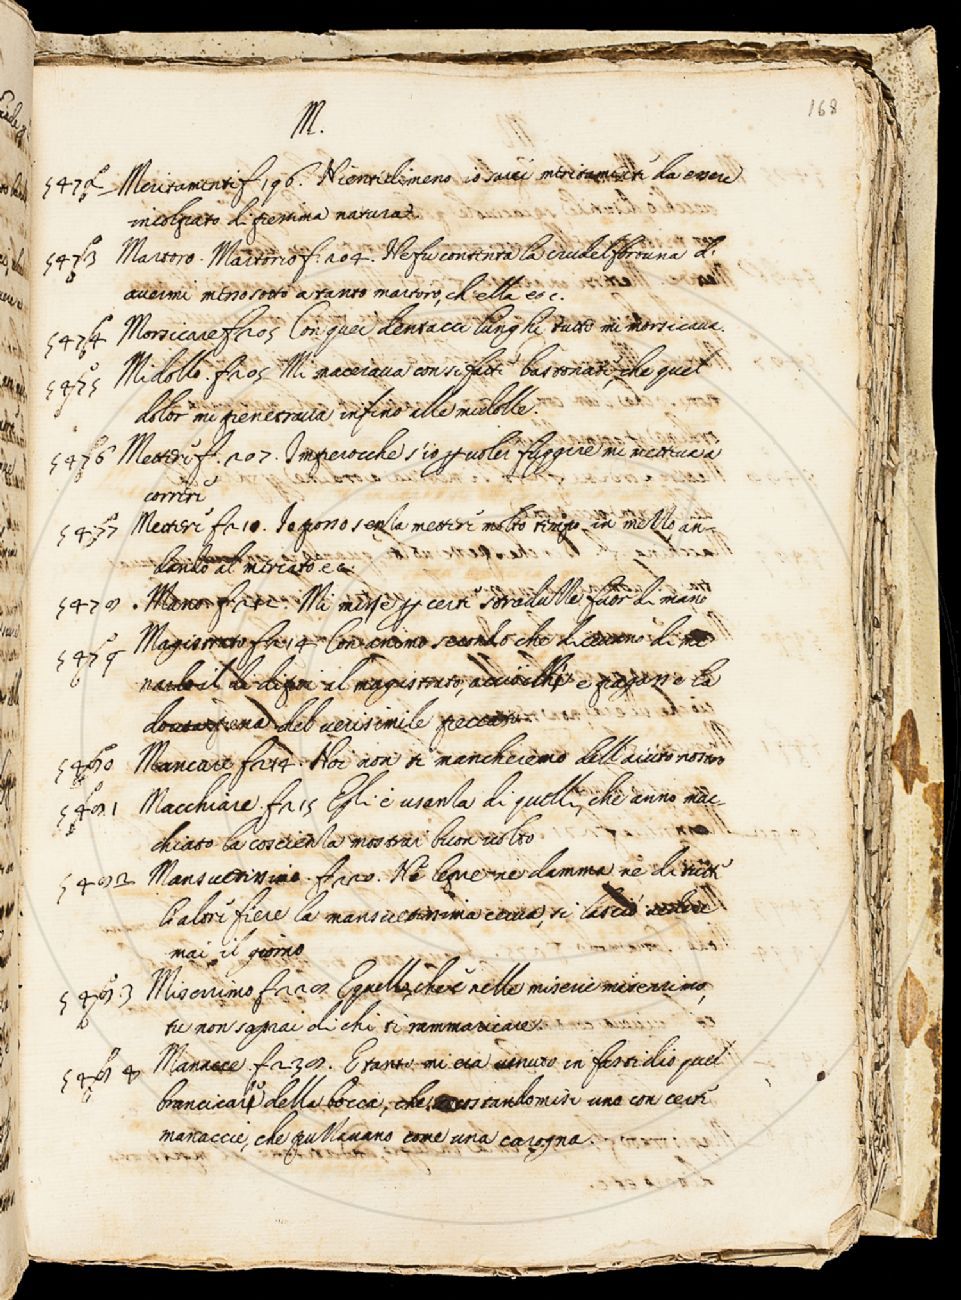 M.
168
5472 Meritamente f. 196. Nientedimeno io sarei meritamente da essere
incolpato di pessima natura.
5473 Martoro. Martorio f. 204. Ne fu contenta la crudel fortuna d'
avermi messo sotto a tanto martoro, ch'ella ec.
5474 Morsicare f. 205 Con quei dentacci lunghi tutto mi morsicava.
5475 Midollo. f. 205 Mi macerava con sì fatte bastonate, che quel
dolor mi penetrava infino alle midolle.
5476 Mettersi f. 207. Imperocche s'io volea fuggire mi metteva a
correre
5477 Mettersi f. 210. Io posso senza mettersi molto tempo in mezzo an-
dando al mercato ec.
5478. Mano. f. 212. Mi misse p certe straduzze fuor di mano
5479 Magistrato f. 214 Con animo secondo che dicevano di me-
narlo il dì dipoi al magistrato, acciocchè e pagasse la
dovuta pena del verisimile peccato.
5480 Mancare f. 214. Noi non ti mancheremo dell'aiuto nostro
5481 Macchiare. f. 215 Egli è usanza di quelli, che anno mac-
chiato la coscienza mostrar buon volto
5482 Mansuetissimo. f. 220. Nè lepre ne damma ne di tutte
l'altre fiere la mansuetissima cerva, si lasciò vedere
mai il giorno
5483 Miserrimo f. 228. E quello, che è nelle miserie miserrimo,
tu non saprai di chi ti rammaricare.
5484 Manacce f. 238. E tanto mi era venuto in fastidio quel
brancicar della bocca, che accostandomisi uno con certe
manaccie, che puzzavano come una carogna.